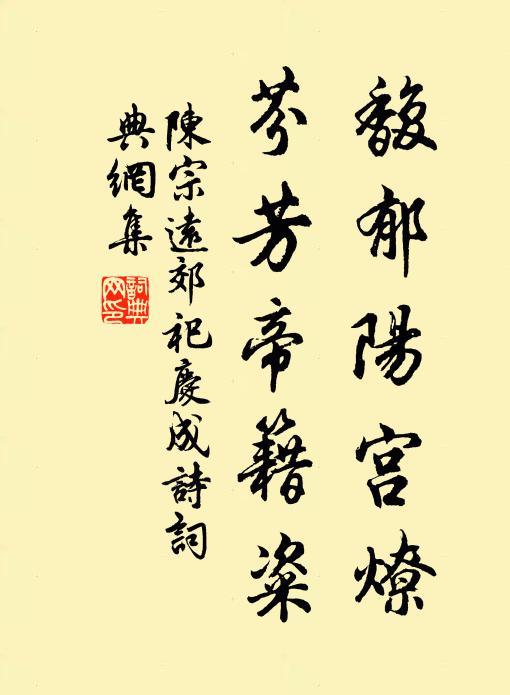 馥郁陽宮燎
芬芳帝籍粢
陳宗遠郊祀慶成詩詞
典網集
詞典網印